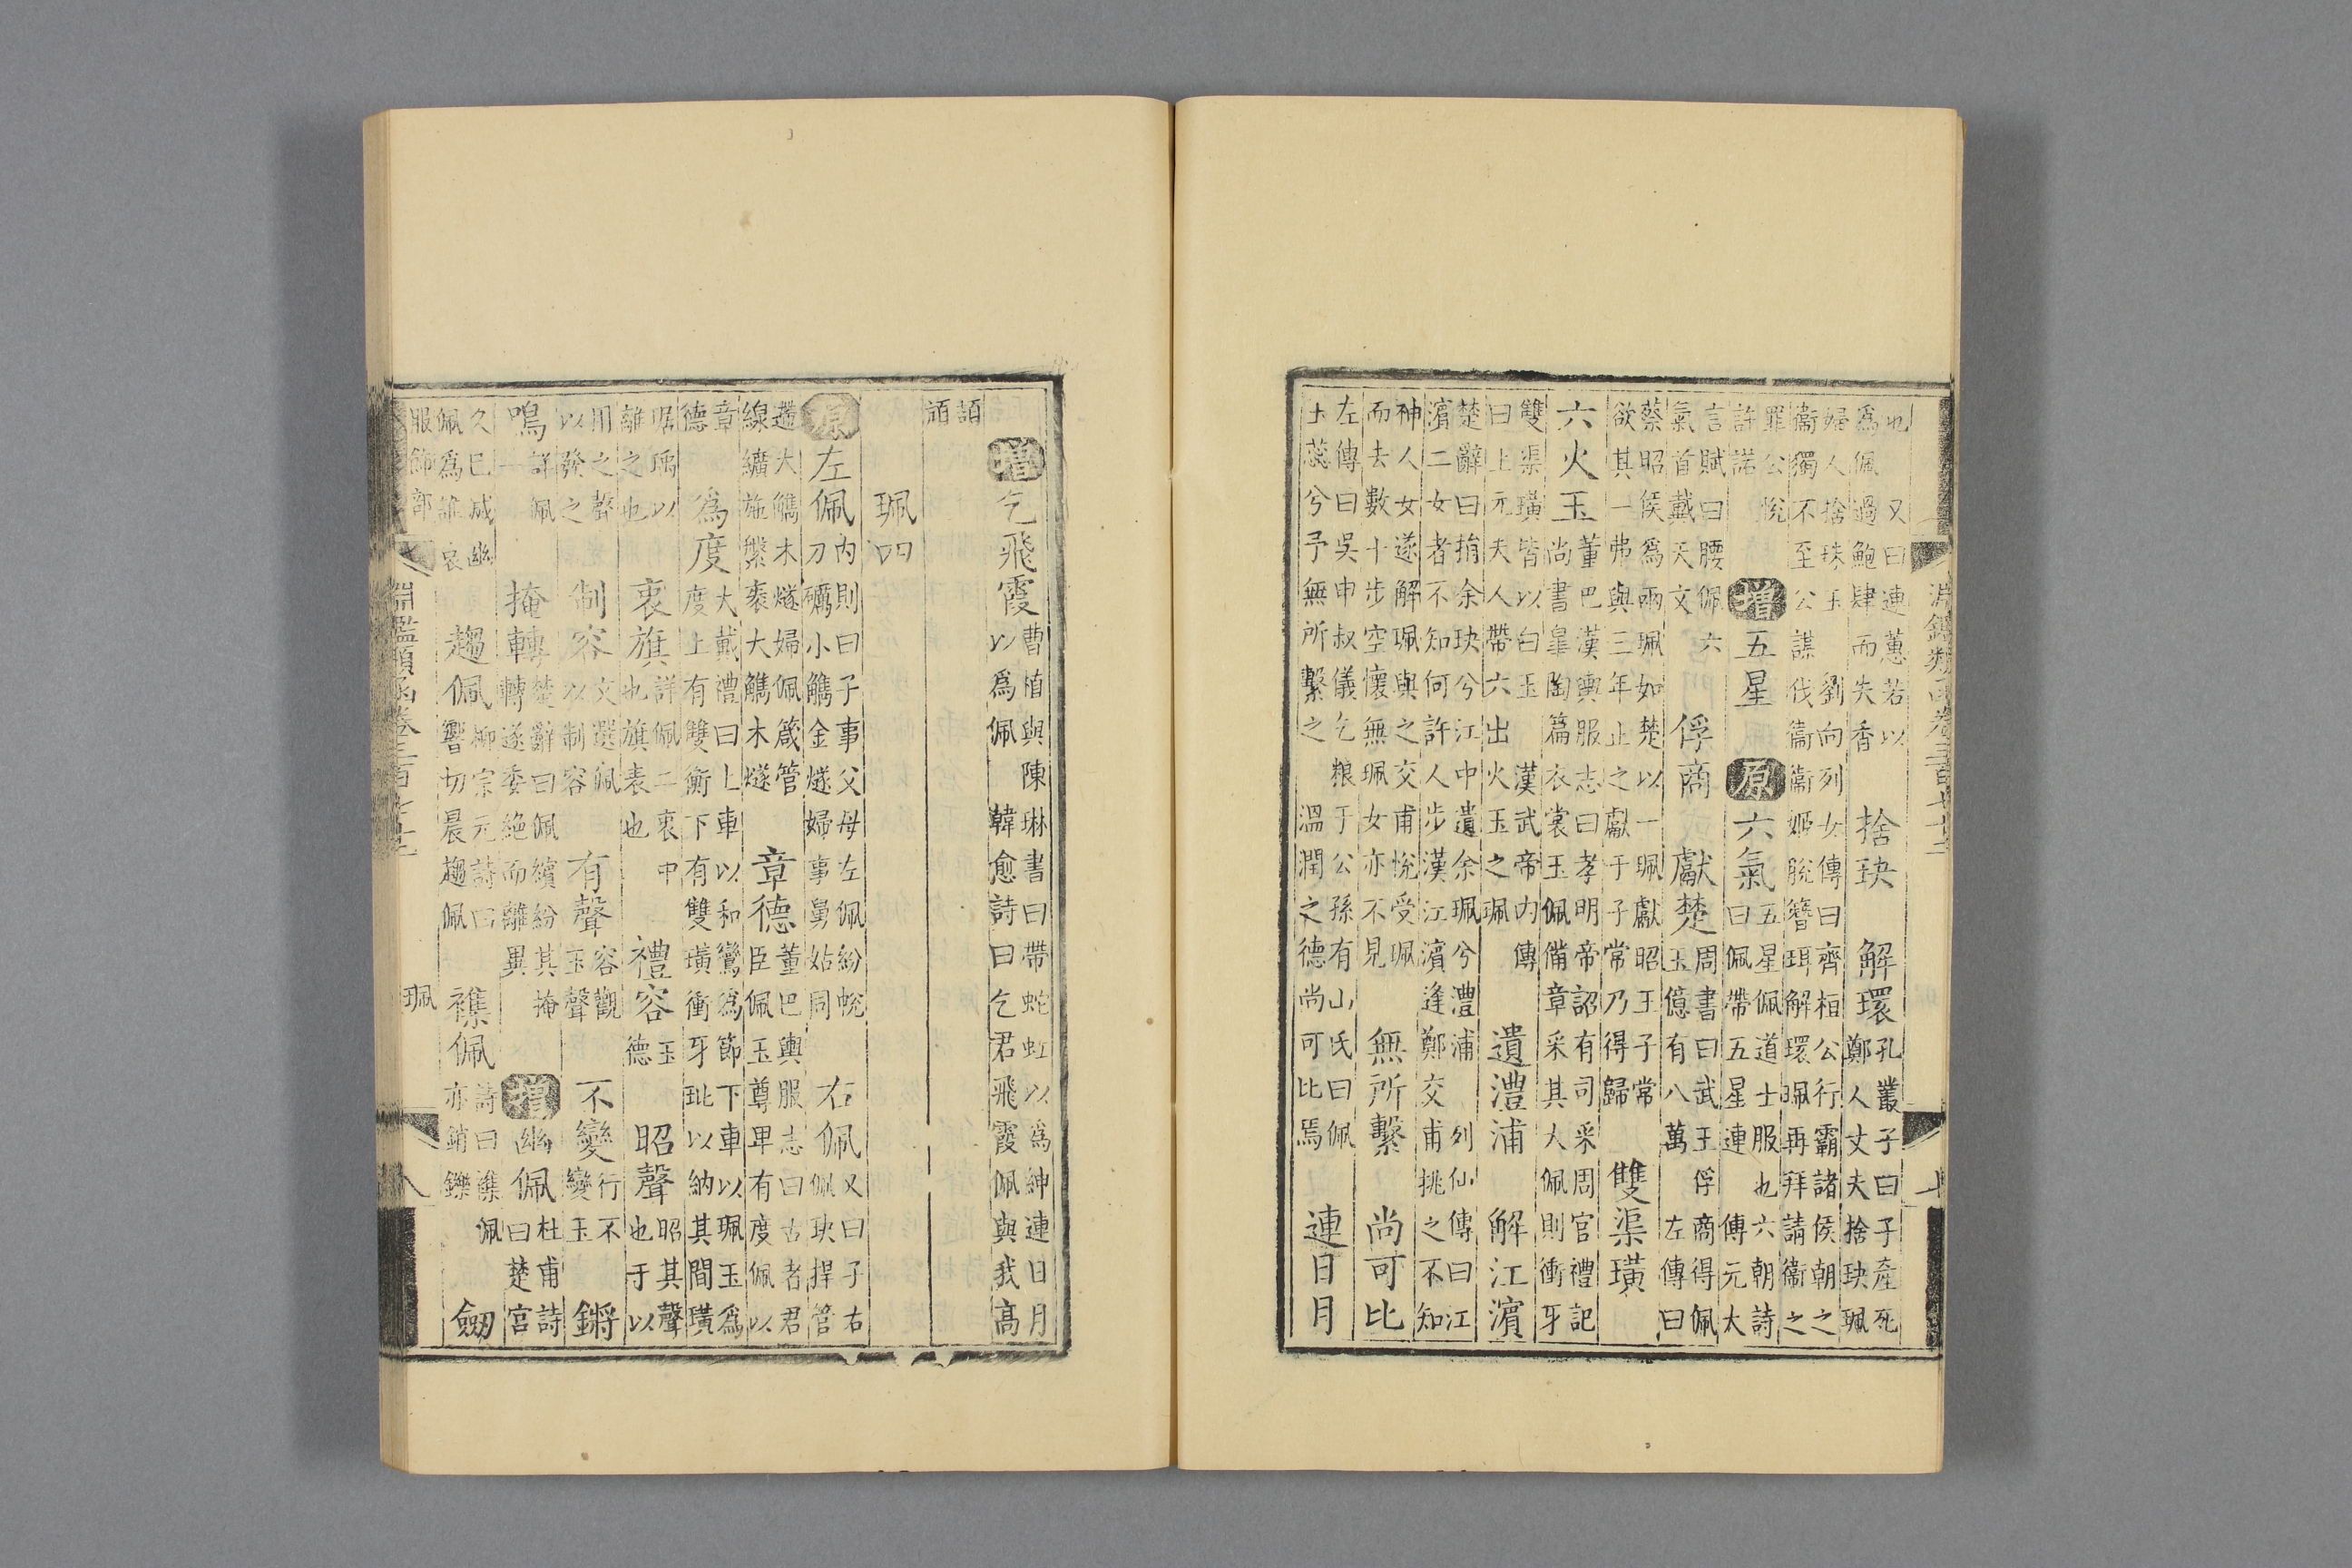 淵鑑類函卷三百七十
也為佩又曰連蕙若以過鮑肆而失香捨玦解環孔叢子曰子產死鄭人丈夫捨玦珮
婦人捨珠玉劉向列女傳曰齊桓公行霸諸侯朝之衞獨不至公謀伐衞衞姬脫簪珥解環珮再拜請衞之
罪公悅許諾增五星原六氣五星佩道士服也六朝詩曰佩帶五星連傳元大
言賦曰腰佩六氣首戴天文俘商獻楚周書曰武王俘商得佩玉億有八萬左傳曰
蔡昭侯為兩珮如楚以一珮獻昭王子常欲其一弗與三年止之獻于子常乃得歸雙渠璜
六火玉董巴漢輿服志曰孝明帝詔有司采周官禮記尚書皐陶篇衣裳玉佩備章采其大佩則衝牙
雙渠璜皆以白玉漢武帝內傳曰上元夫人帶六出火玉之珮遺澧浦解江濱
楚辭曰捐余玦兮江中遺余珮兮澧浦列仙傳曰江濱二女者不知何許人步漢江濱逢鄭交甫挑之不知
神人女遂解珮與之交甫悅受珮而去數十步空懷無珮女亦不見無所繫尚可比
左傳曰吳申叔儀乞粮于公孫有山氏曰佩玉蕊兮予無所繫之溫潤之德尚可比焉連日月
增乞飛霞曹植與陳琳書曰帶蛇虹以為紳連日月以為佩韓愈詩曰乞君飛霞佩與我高
頡頏
珮四
原左佩內則曰子事父母左佩紛帨刀礪小觿金燧婦事舅姑同右佩又曰子右佩玦捍管
遰大觿木燧婦佩箴管線纊施縏袠大觿木燧章德董巴輿服志曰古者君臣佩玉尊卑有度佩以
章德為度大戴禮曰上車以和鸞為節下車以珮玉為度上有雙衡下有雙璜衝牙玭以納其間璜
琚瑀以雜之也衷旗詳佩二衷中也旗表也禮容玉德昭聲昭其聲也于以
用之磬以發之制容文選佩以制容有聲容觀玉聲不變行不變玉鏘
鳴詳佩一掩轉楚辭曰佩繽紛其掩轉遂委絶而離異增幽佩杜甫詩曰楚宮
久已滅幽佩為誰哀趨佩柳宗元詩曰響切晨趨佩襍佩詩曰襍佩亦銷鑠劒
服飾部
珮
八
淵鑑類函卷三百七十